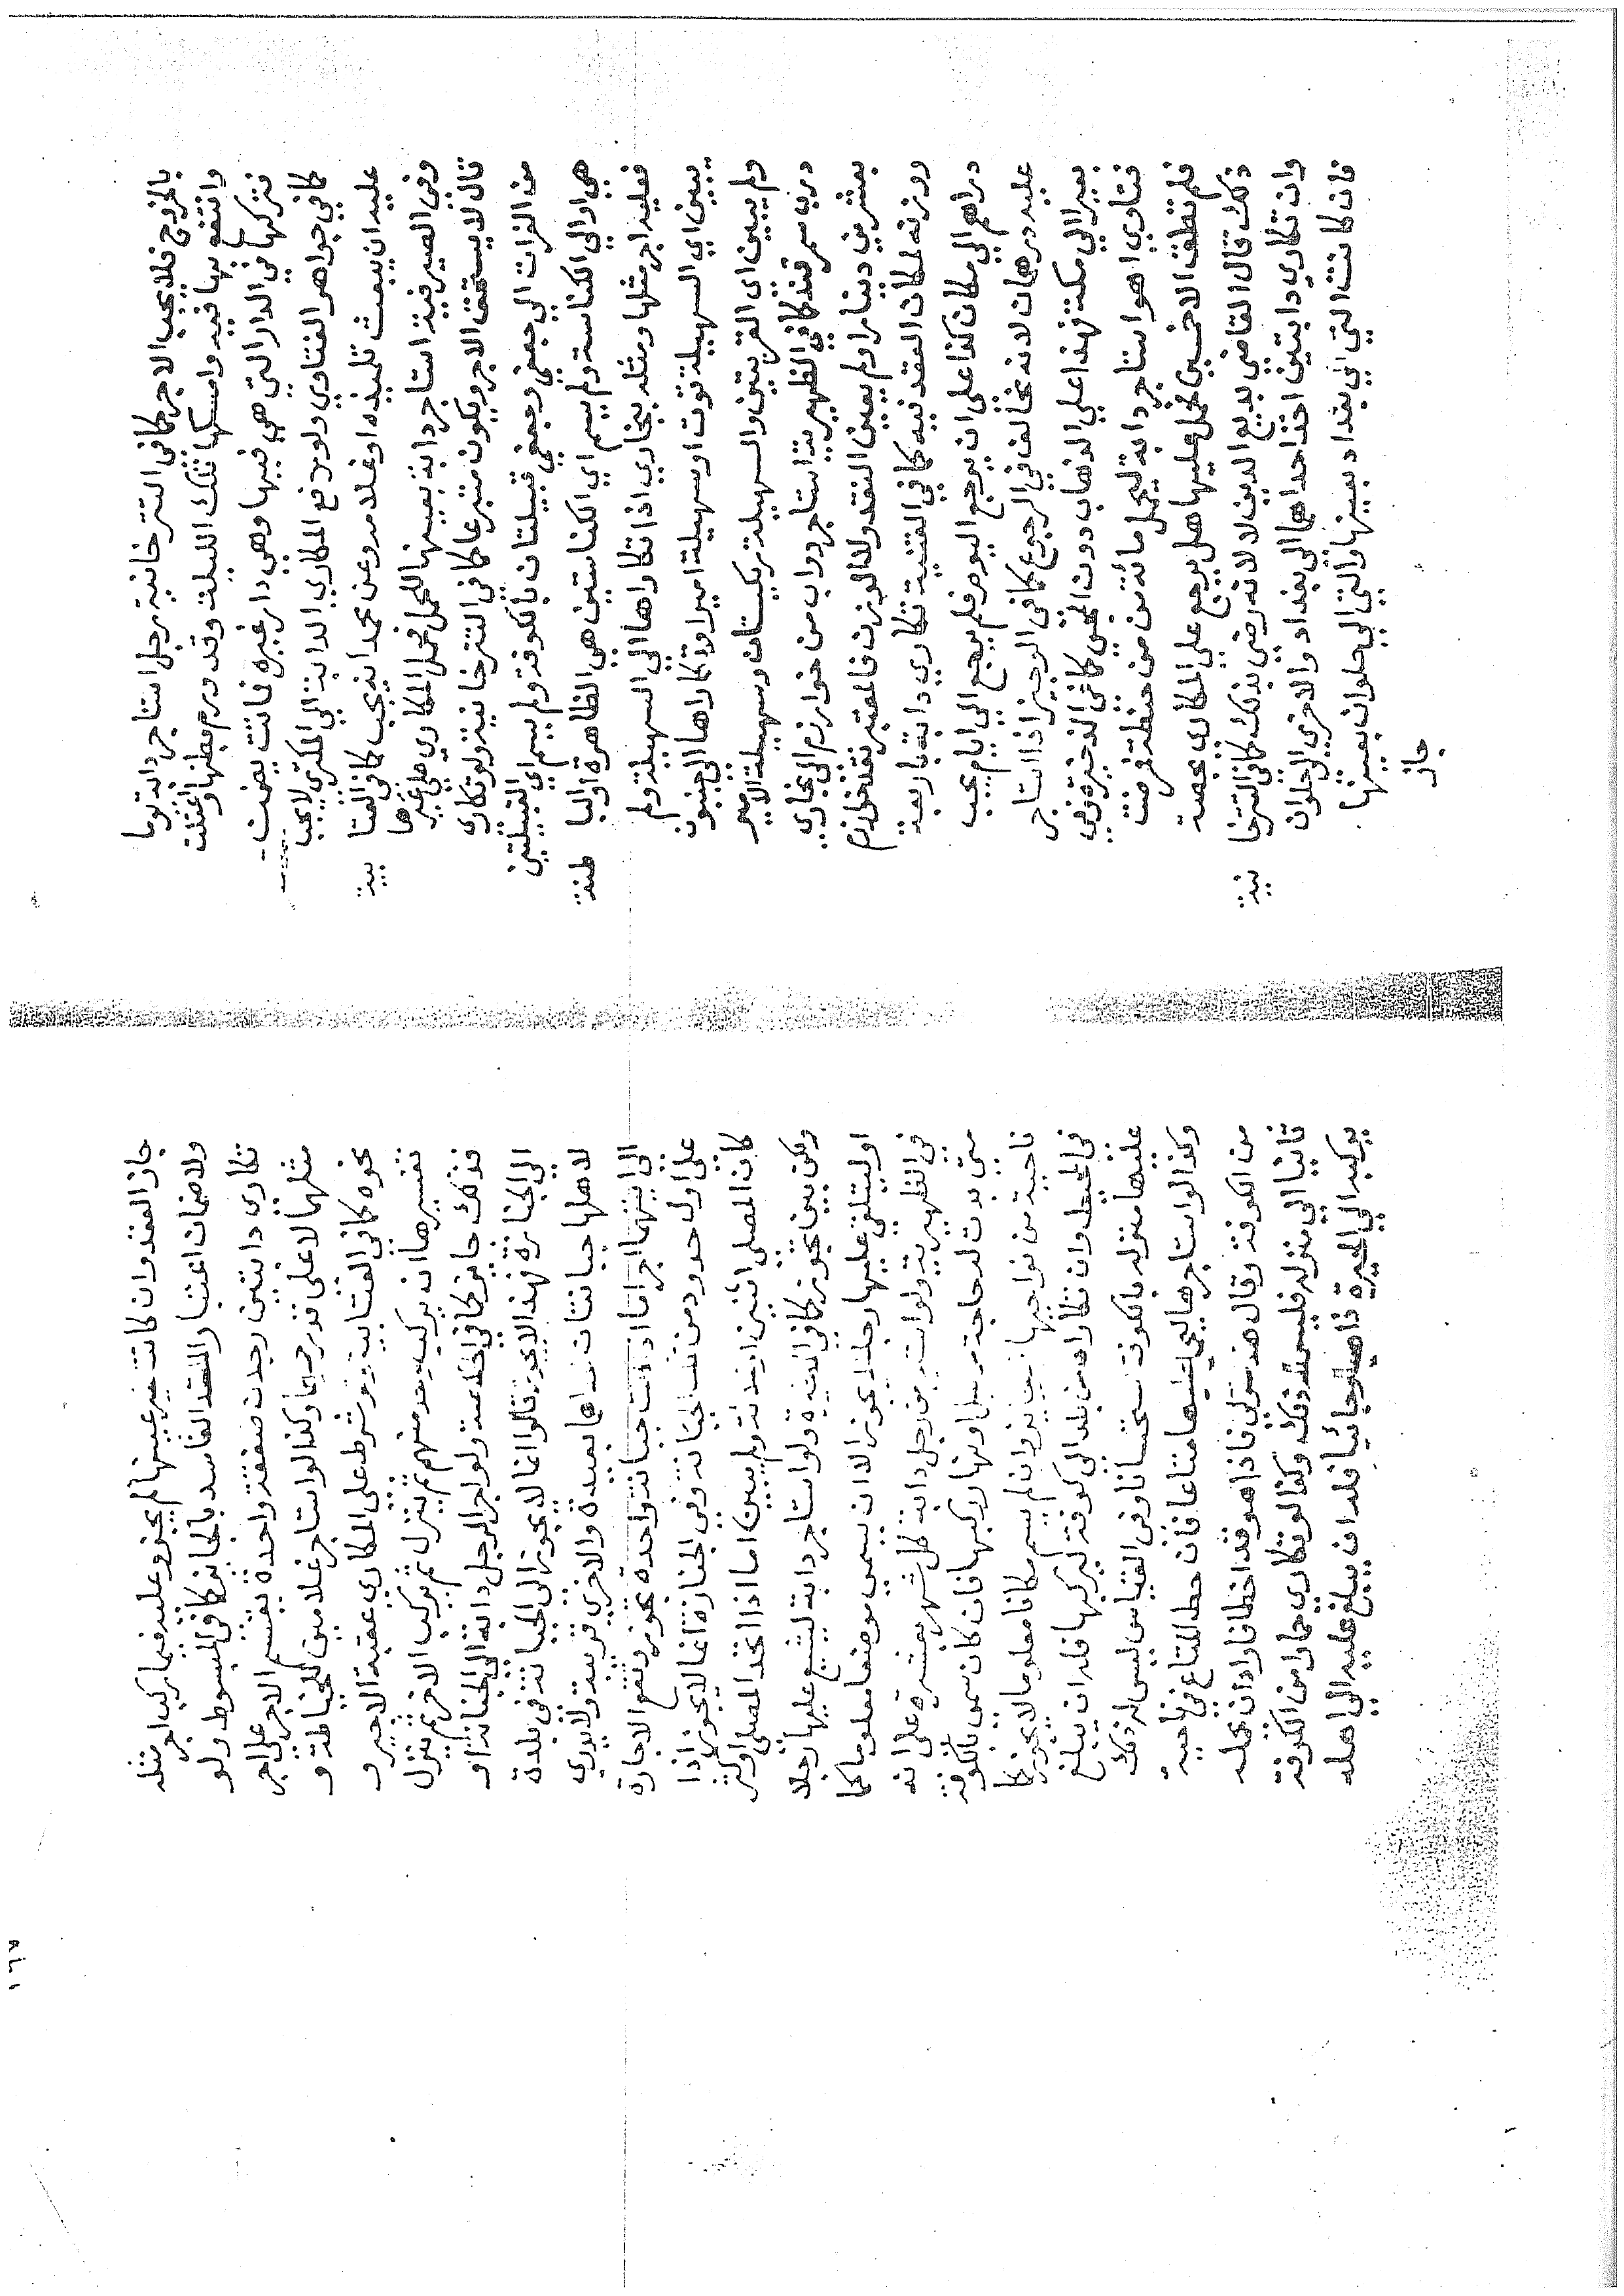 بالخروج فلا يجب الاجر كما في التترخانية رجل استاجر دابة يوما
وانتفع بها فيه وامسكها تلك الليلة وقد ورم بطنها واعتلت
فتركها في الدار التي هي فيها وهي دار غيره فماتت يضمن
كما في جواهر الفتاوي ولو دفع المكاري الدابة الي المكتري لا يجب
عليه ان يبعث تلميذه او غلامه وعن محمد انه يجب كما في الفتا
بية
وفي الصيرفية استاجر دابة بعينها للحمل فحمل المكاري على غيرها
قال لا يستحق الاجر ويكون متبرعا كما في التترخانية ولو تكاري
من الفرات الي جعفي وجعفي قبيلتان بالكوفة ولم يسم اي القبيلتين
هي او الي الكناسة ولم يسم اي الكناستين هي الظاهرة او البا
طنة
فعليه اجر مثلها ومثله ببخاري اذا تكاراها الي السهيلة ولم
يبين اي السهيلة قوت او سهيلة امير او تكاراها الي حنبون
ولم يبين اي القريتين والسهيلة ريكستان وسهيلة الامير
درب سمرقند كما في الظهيرية استاجر دواب من خوارزم الي بخاري
بعشرين دينارا ولم يعين النقد ولا الوزن فالمعتبر نقد خوارزم
ووزنه لمكان العقد فيه كما في القنية تكاري دابة باربعة
دراهم الي مكان كذا علي ان يرجع اليوم فلم يرجع الي ايام يجب
عليه درهمان لانه مخالف في الرجوع كما في الوجيز اذا استاجر
بعيرا الي مكة فهذا علي الذهاب دون المجئ كما في الذخيرة وفي
فتاوي اهو استاجر دابة ليحمل مائة من من حنطة فمرضت
فلم تطق الا خمسين فحمل عليها هل يرجع علي المكاري بحصة
ذلك قال القاضي بديع الدين لا لانه رضي بذلك كما في التترخا
نية
وان تكاري دابتين احداهما الي بغداد والاخري الي حلوان
فان كانت التي الي بغداد بعينها والتي الي حلوان بعينها
جاز
جاز العقد وان كانت غير عينها لم يجز وعليه فيما ركب اجر مثله
ولا ضمان اعتبار العقد الفاسد بالجايز كما في المبسوط ولو
تكاري دابتين رجلان صفقة واحدة يقسم الاجر على اجر
مثلهما لا على قدر حمهما وكذا لو استاجر غلامين للخياطة و
نحوه كما في الفتابية ولو شرط على المكاري عقبة الاجير و
تفسيرها ان يركب واحد منهم ثم ينزل ثم يركب الاخر ثم ينزل
فذلك جايز كما في الخلاصة ولو اجر الرجل دابة الي الجنازة او
الي الجنازة فهذا لا يجوز قالوا انما لا يجوز الي الجبانة في بلدة
لاهلها جبانتان احداهما بعيدة والاخري قريبة ولا يدري
الي ايتهما اجر اما اذا كانت جبانة واحدة يجوز وتقع الاجارة
على اول حدود من تلك الجبانة وفي الجنازة انما لا يجوز اذا
كان المصلى اثنين او ثلاثة ولم يبين اما اذا اتحد المصلى او كثر
ولكن بين يجوز كما في الذخيرة ولو استاجر دابة ليشيع عليها رجلا
او ليتلقى عليها رجلا لا يجوز الا ان يسمي موضعا معلوما كما
في الظهيرية ولو استاجر من رجل دابة كل شهر بعشرة على انه
متى بدت له حاجة ليلا ونهارا ركبها فان كان سمى بالكوفة
ناحية من نواحيها جاز وان لم يسم مكانا معلوما لا يجوز كما
في المحيط وان تكاراه من بلد الي كوفة ليركبها فله ان يبلغ
عليها منزله بالكوفة استحسانا وفي القياس ليس له ذلك
وكذا لو استاجرها ليحمل عليها متاعا فان حط المتاع في ناحية
من الكوفة وقال هذا منزلي فاذا هو قد اخطا فاراد ان يحمله
ثانيا الي منزله فليس له ذلك وكذا لو تكاري حمارا من الكوفة
يركبه الي الحيرة ذاهبا وجائيا فله ان يبلغ عليه الي اهله
١٦٩